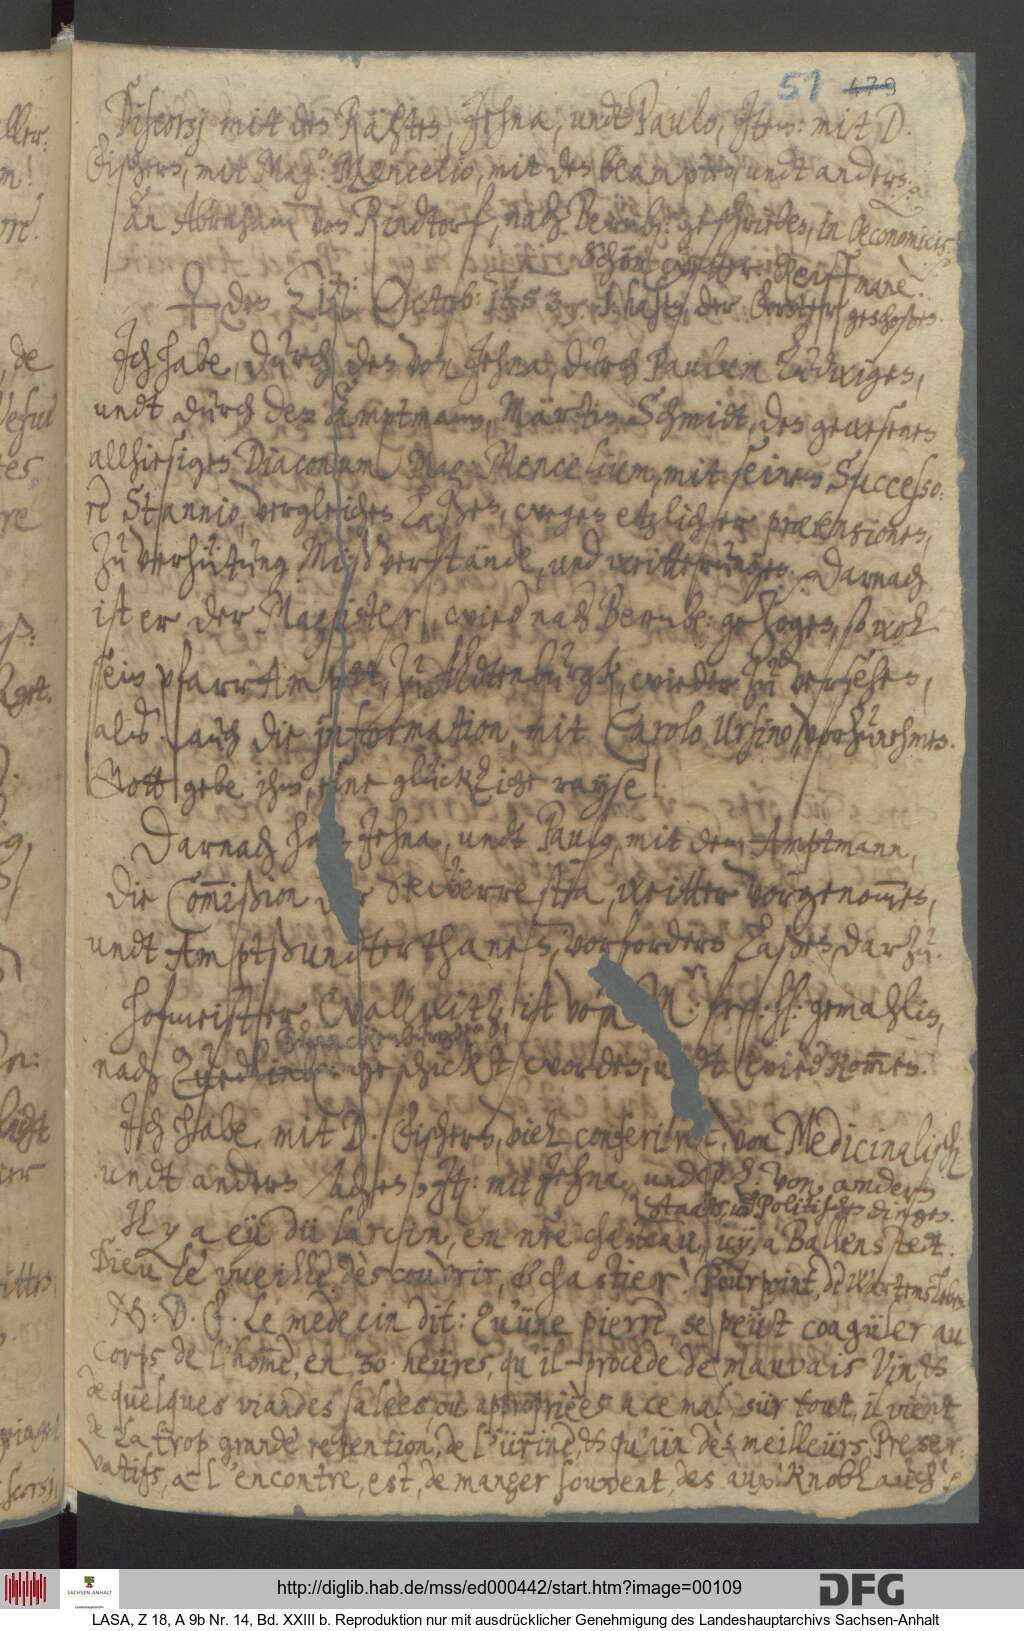 51 479
Discorsj mit des Rähten, Jehna, undt Paulo, Item: mit D.
Fischern, mit Mag: Mencelio, mit den beampten, undt andern:
An Abraham von Rindtorf, nach Bernb: geschrieben, in Oeconomicis.
Schön wetter. Reiff mane.
♀ den 21. Octob: 1653. 1 hasen, der Förster geschoßen.
Ich habe, durch den von Jehna, durch Paulum Ludwigen,
undt durch den Amptmann, Martin Schmidt, den gewesenen
allhiesigen Diaconum Mag. Mencelium, mit seinem Successo:
re Stannio, vergleichen laßen, wegen etzlicher prætensionen,
zu verhütung Mißverstände, und weitterungen. Darnach
ist er der Magister, wied nach Bernb: gezogen, so wol
sein pfarrAmpt, zu Aldtenburgk, wieder zu versehen,
als auch die information, mit Carolo Ursino, vorzunehmen.
Gott gebe ihm, eine glücklich rayse!
Darnach hat Jehna, undt Paulo, mit dem Amptmann,
die Com̄ißion der Stewerresten, weitter vorgenom̄en,
undt Amptßunterthanen, vorfordern laßen, darzu.
Hofmeister Wallwitz, ist von M: herf: h: gemahlin,
nach Quedlinb: geschickt worden, undt wied kom̄en.
Ich habe, mit D. Fischern, viel conferiret, von Medicinalisch
undt andern sachen, It: mit Jehna, und P. L. von, andern
Staats, und Politischen dingen.
Il y a eü dü larcin, en nr̄e chasteau, icy, a Ballenstedt.
Dieu le vueille, descouvrir, & chastier! Pourpoint, de Wartensleben
N: D: F. Le medecin dit: Qu'üne pierre, se peüst coagüler au
corps de l'hom̄e, en, 30. heüres, qu'il procede de mauvais Vin, &
de quelques viandes salèes, ou appropriées a ce mal, sür tout, il vient
de la trop grande retention, de l'ürine, & qu'ün des meilleürs, Preser-
vatifs, a l'encontre, est, de manger souvent, des aux! Knoblauch!
http://diglib.hab.de/mss/ed000442/start.htm?image=00109
SACHSEN-ANHALT
DFG
LASA, Z 18, A 9b Nr. 14, Bd. XXIII b. Reproduktion nur mit ausdrücklicher Genehmigung des Landeshauptarchivs Sachsen-Anhalt